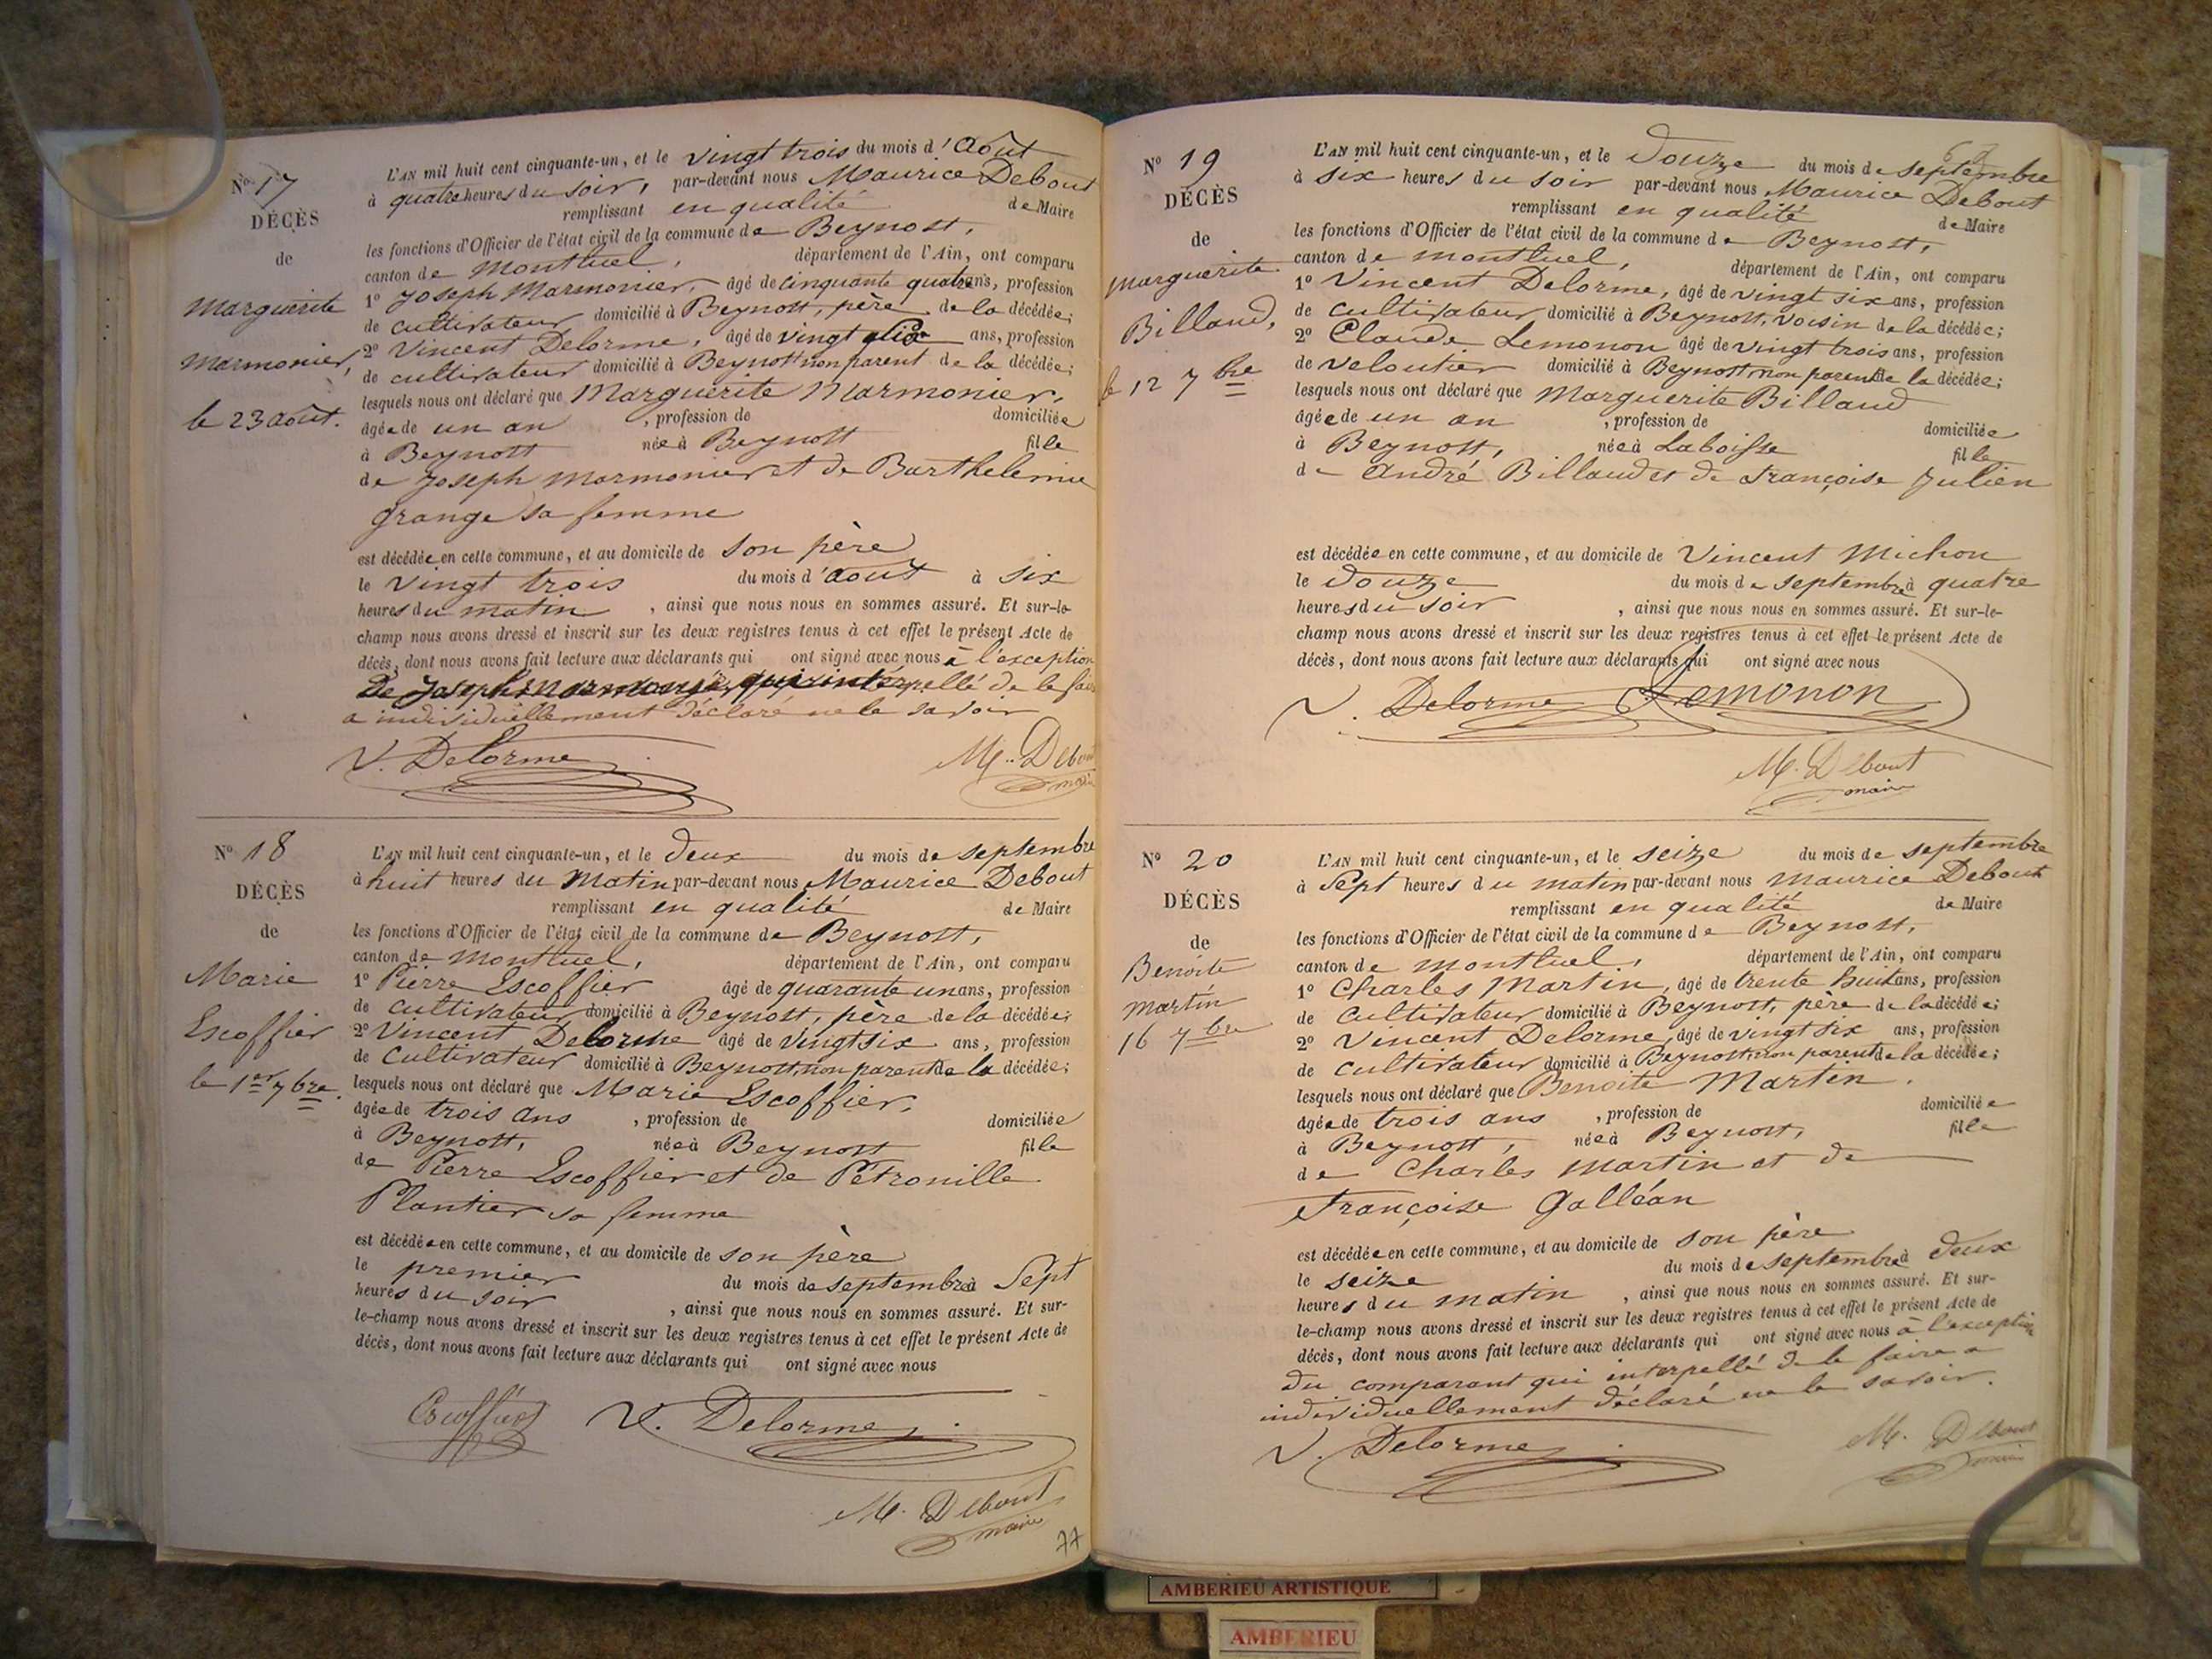 N° 17
DÉCÈS
de
Marguerite
Marmonier,
le 23 août.
L'AN mil huit cent cinquante-un, et le vingt trois du mois d'Août
à quatre heures du soir, par-devant nous Maurice Debout
remplissant en qualité de Maire
les fonctions d'Officier de l'état civil de la commune de Beynost,
canton de Montluel, département de l'Ain, ont comparu
1° Joseph Marmonier, âgé de cinquante quatre ans, profession
de cultivateur domicilié à Beynost, père de la décédée;
2° Vincent Delorme, âgé de vingt six ans, profession
de cultivateur domicilié à Beynost non parent de la décédée;
lesquels nous ont déclaré que Marguerite Marmonier,
âgée de un an , profession de domiciliée
à Beynost née à Beynost fille
de Joseph Marmonier et de Barthelemie
Grange sa femme
est décédée en cette commune, et au domicile de son père
le vingt trois du mois d'août à six
heures du matin , ainsi que nous nous en sommes assuré. Et sur-le-
champ nous avons dressé et inscrit sur les deux registres tenus à cet effet le présent Acte de
décès, dont nous avons fait lecture aux déclarants qui ont signé avec nous à l'exception
de Joseph Marmonier, qui interpellé de le faire
a individuellement déclaré ne le savoir
V. Delorme M. Debout
maire
N° 18
DÉCÈS
de
Marie
Escoffier
le 1er 7bre.
L'AN mil huit cent cinquante-un, et le deux du mois de septembre
à huit heures du Matin par-devant nous Maurice Debout
remplissant en qualité de Maire
les fonctions d'Officier de l'état civil de la commune de Beynost,
canton de Montluel, département de l'Ain, ont comparu
1° Pierre Escoffier âgé de quarante un ans, profession
de cultivateur domicilié à Beynost, père de la décédée;
2° Vincent Delorme âgé de vingt six ans, profession
de cultivateur domicilié à Beynost, non parent de la décédée;
lesquels nous ont déclaré que Marie Escoffier,
âgée de trois ans , profession de domiciliée
à Beynost, née à Beynost fille
de Pierre Escoffier et de Pétronille
Plantier sa femme
est décédée en cette commune, et au domicile de son père
le premier du mois de septembre à Sept
heures du soir , ainsi que nous nous en sommes assuré. Et sur-
le-champ nous avons dressé et inscrit sur les deux registres tenus à cet effet le présent Acte de
décès, dont nous avons fait lecture aux déclarants qui ont signé avec nous
Escoffier V. Delorme
M. Debout
maire
77
N° 19
DÉCÈS
de
Marguerite
Billaud,
le 12 7bre
L'AN mil huit cent cinquante-un, et le Douze du mois de septembre
à six heures du soir par-devant nous Maurice Debout
remplissant en qualité de Maire
les fonctions d'Officier de l'état civil de la commune de Beynost,
canton de Montluel, département de l'Ain, ont comparu
1° Vincent Delorme, âgé de vingt six ans, profession
de cultivateur domicilié à Beynost, voisin de la décédée;
2° Claude Lemonon âgé de vingt trois ans, profession
de veloutier domicilié à Beynost non parent de la décédée;
lesquels nous ont déclaré que Marguerite Billaud
âgée de un an , profession de domiciliée
à Beynost, née à Laboisse fille
de André Billaud et de Françoise Julien
est décédée en cette commune, et au domicile de Vincent Michon
le Douze du mois de septembre à quatre
heures du soir , ainsi que nous nous en sommes assuré. Et sur-le-
champ nous avons dressé et inscrit sur les deux registres tenus à cet effet le présent Acte de
décès, dont nous avons fait lecture aux déclarants qui ont signé avec nous
V. Delorme Lemonon
M. Debout
maire
N° 20
DÉCÈS
de
Benoite
Martin
16 7bre
L'AN mil huit cent cinquante-un, et le seize du mois de septembre
à Sept heures du matin par-devant nous Maurice Debout
remplissant en qualité de Maire
les fonctions d'Officier de l'état civil de la commune de Beynost,
canton de Montluel, département de l'Ain, ont comparu
1° Charles Martin, âgé de trente huit ans, profession
de cultivateur domicilié à Beynost, père de la décédée;
2° Vincent Delorme, âgé de vingt six ans, profession
de cultivateur domicilié à Beynost non parent de la décédée;
lesquels nous ont déclaré que Benoite Martin.
âgée de trois ans , profession de domiciliée
à Beynost, née à Beynost, fille
de Charles Martin et de
Françoise Galléan
est décédée en cette commune, et au domicile de son père
le seize du mois de septembre à deux
heures du matin , ainsi que nous nous en sommes assuré. Et sur-
le-champ nous avons dressé et inscrit sur les deux registres tenus à cet effet le présent Acte de
décès, dont nous avons fait lecture aux déclarants qui ont signé avec nous à l'exception
du comparant qui interpellé de le faire a
individuellement déclaré ne le savoir.
V. Delorme M. Debout
maire
AMBERIEU ARTISTIQUE
AMBERIEU